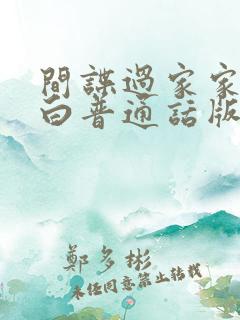 間諜過家家
白普通話版
鄭多彬
未經同意禁止轉載